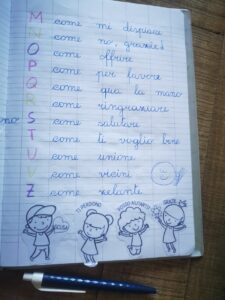 M come mi dispiace
N come no, grazie!
O come offrire
P come per favore
Q come qua la mano
R come ringraziare
S come salutare
T come ti voglio bene
U come unione
V come vicini
Z come zelante
no
SCUSA
TI PERDONO
GRAZIE